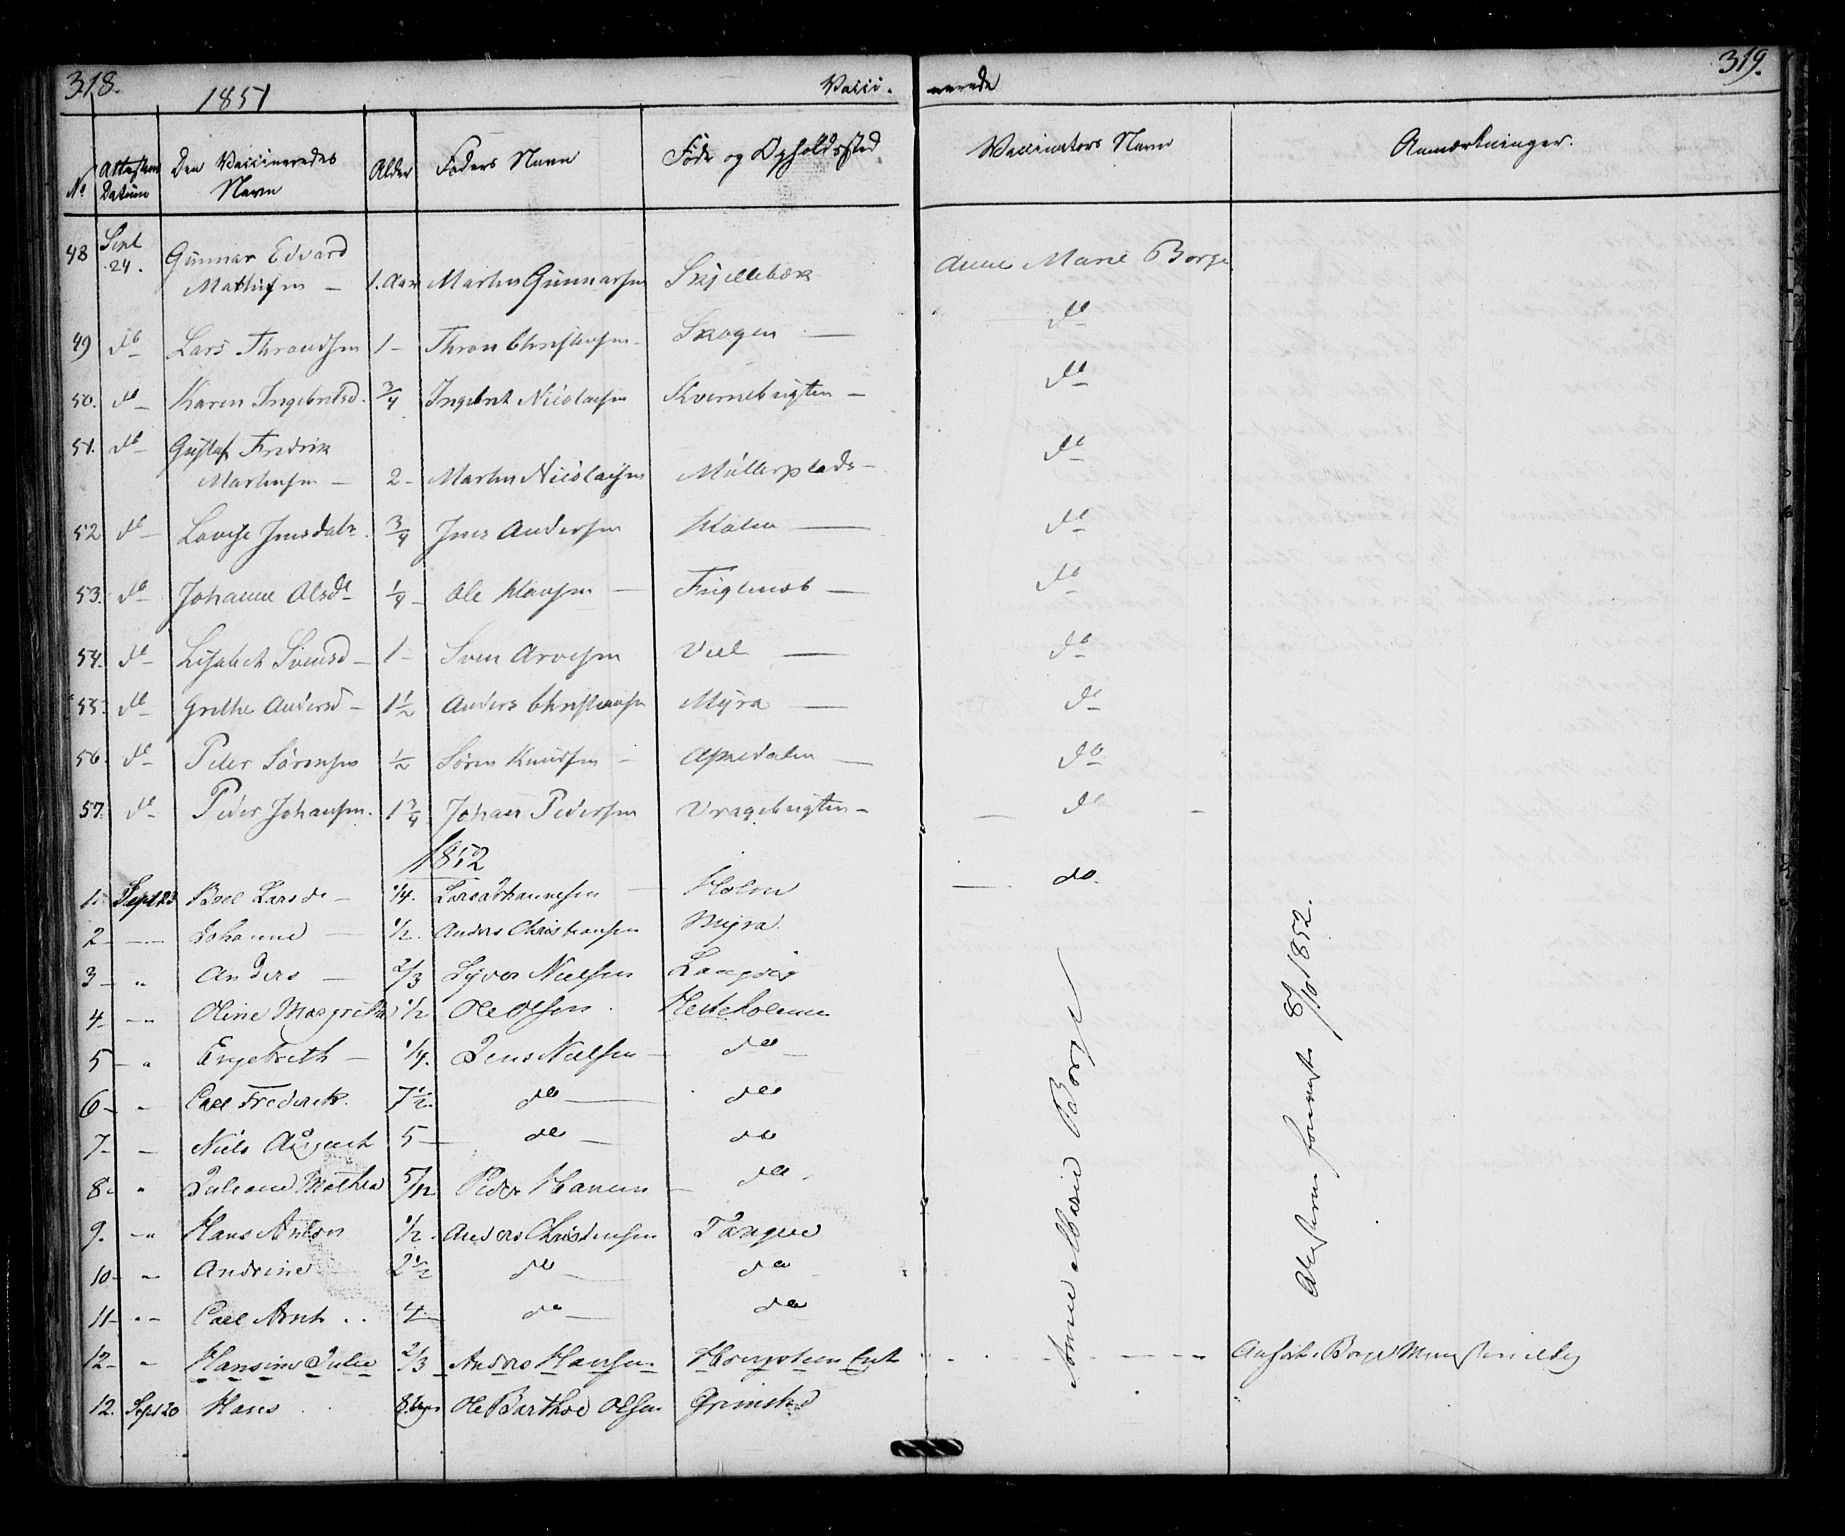 318.
1851
Vacci-
nerede
319.
No
Attestens Datum
Den Vaccineredes Navn
Alder
Faders Navn
Føde og Opholdssted
Vaccinators Navn
Anmærkninger.
48 Sept 24. Gunnar Edvard
Mathisen – 1. Aar Martin Gunnarsen Skjellebæk Anne Marie Borge
49 do Lars Throndsen 1 – Thron Christensen – Skogen – do
50. do – Karen Ingebretsd. 3/4 Ingebret Nicolaisen Kvernebugten – do
51. do – Gustaf Fredrik
Martinsen – 2 – Martin Nicolaisen Møllerplads – do
52 do – Lovise Jensdatr. 3/4 Jens Andersen Holen – do
53. do – Johanne Olsdr 1/4 – Ole Klausen – do
54. do – Lisabeth Svensd – 1 – Sven Arvesen – do
55. do – Grethe Andersd – 1 1/2 Anders Christensen Myra – do
56. do – Peder Sørensen 1/2 Søren Knudsen – Apnedalen – do
57. do – Peder Johansen. 1 3/4 Johan Pedersen Vragebugten – do –
1852
1. Sept 23 Boel Larsdr – 1/4. Lars Johannesen – Holen – do.
2 – Johanne – 1/2. Anders Christensen Myra.
3 – " Anders – 2/3 Syver Nielsen Langvig
4 – " Oline Margrethe 1/2 Ole Olsen. Hesteholmen
5 – " Engebreth – 1/4. Jens Nielsen – do –
6 – " Carl Frederik. 7 1/2. do – do
7 – – Niels August 5 – do – do
8 – " Juliane Mathea 5/12 Peder Hansen – do –
9. – " Hans Anton 1/2. Anders Christensen Tangen
10 – " Andrine – 2 1/2 do – do
11 – " – Carl Arnt .. 4 – do – do
12 – " Hansine Julie 2/3 Anders Hansen
12. Sept 20 Hans 8 Ole Barthol Olsen Grimstad
Anne Marie Borge
8/10 1852.